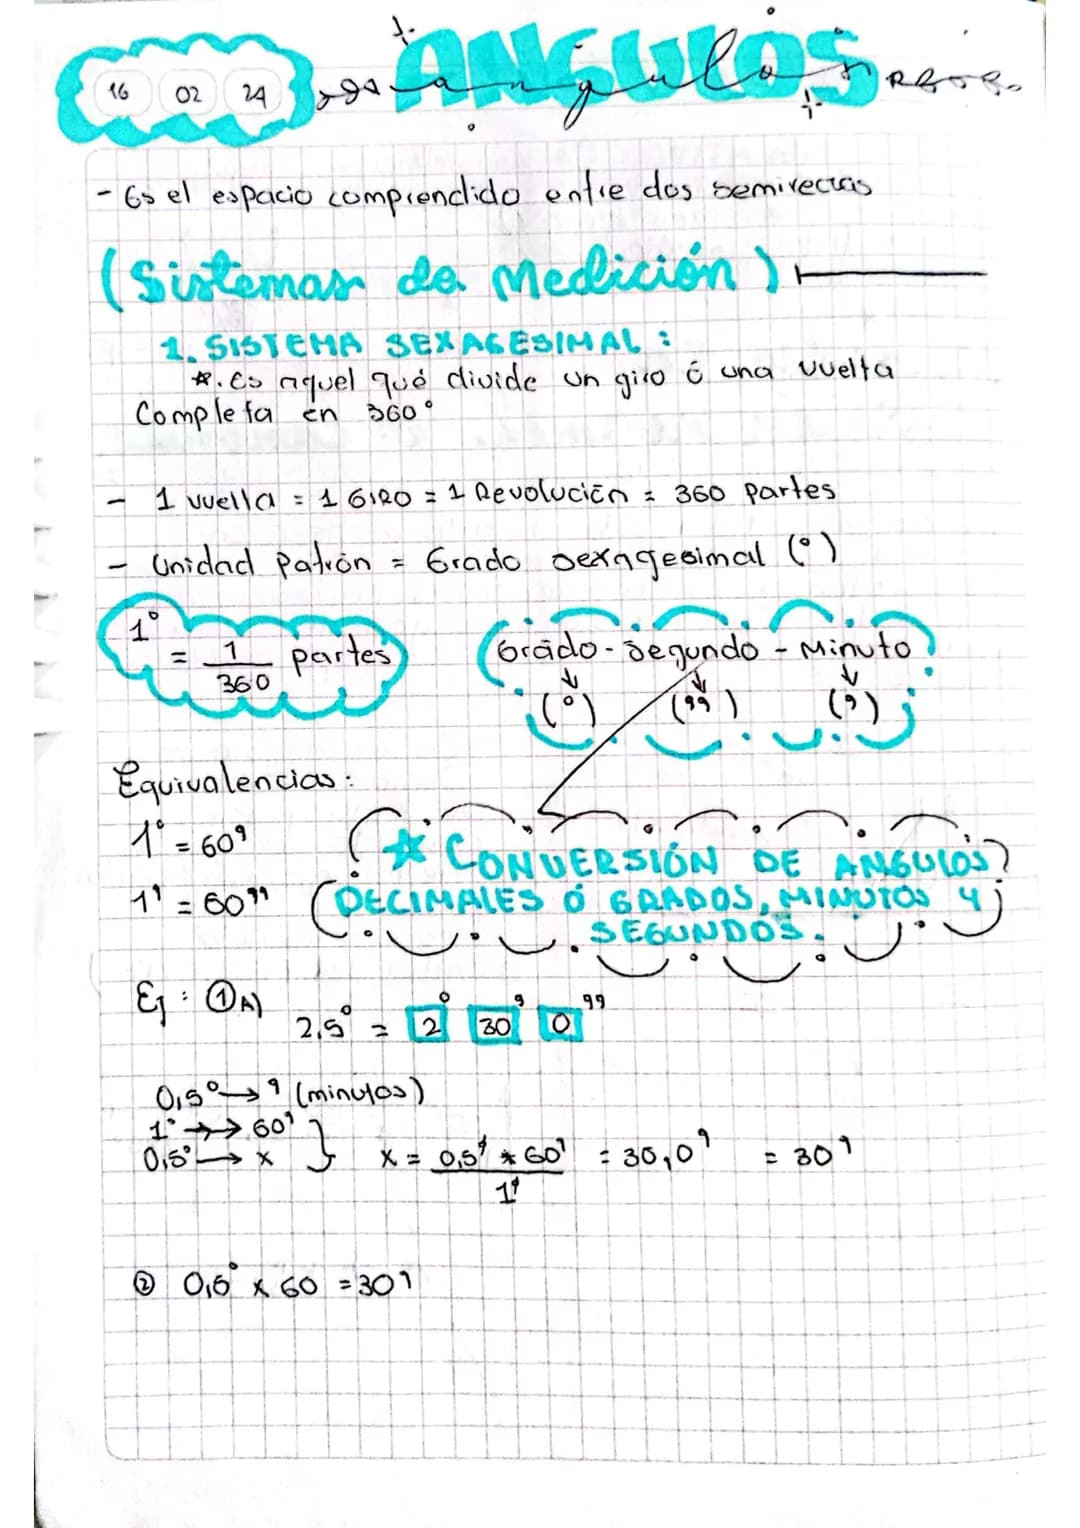 16 02 24
ANGULOS
angulos
- Es el espacio comprendido entre dos semirectas
(Sistemas de Medición)
1. SISTEMA SEXAGESIMAL :
*. Es aquel qué divide un giro ó una vuelta
Completa en 360°
- 1 vuelta = 1 GIRO = 1 Revolución = 360 Partes
- Unidad Patrón = Grado sexagesimal (°)
1° = 1/360 partes
Grado - Segundo - Minuto
(°) ('') (')
Equivalencias:
1° = 60'
1' = 60''
☆ CONVERSIÓN DE ANGULOS
DECIMALES Ó GRADOS, MINUTOS Y
SEGUNDOS.
Ej : ① A)
2,5° = 2° 30' 0''
0,5° → ' (minutos)
1° →→ 60'
0,5° → x } x = 0,5° * 60' / 1° = 30,0' = 30'
② 0,5° x 60 = 30'